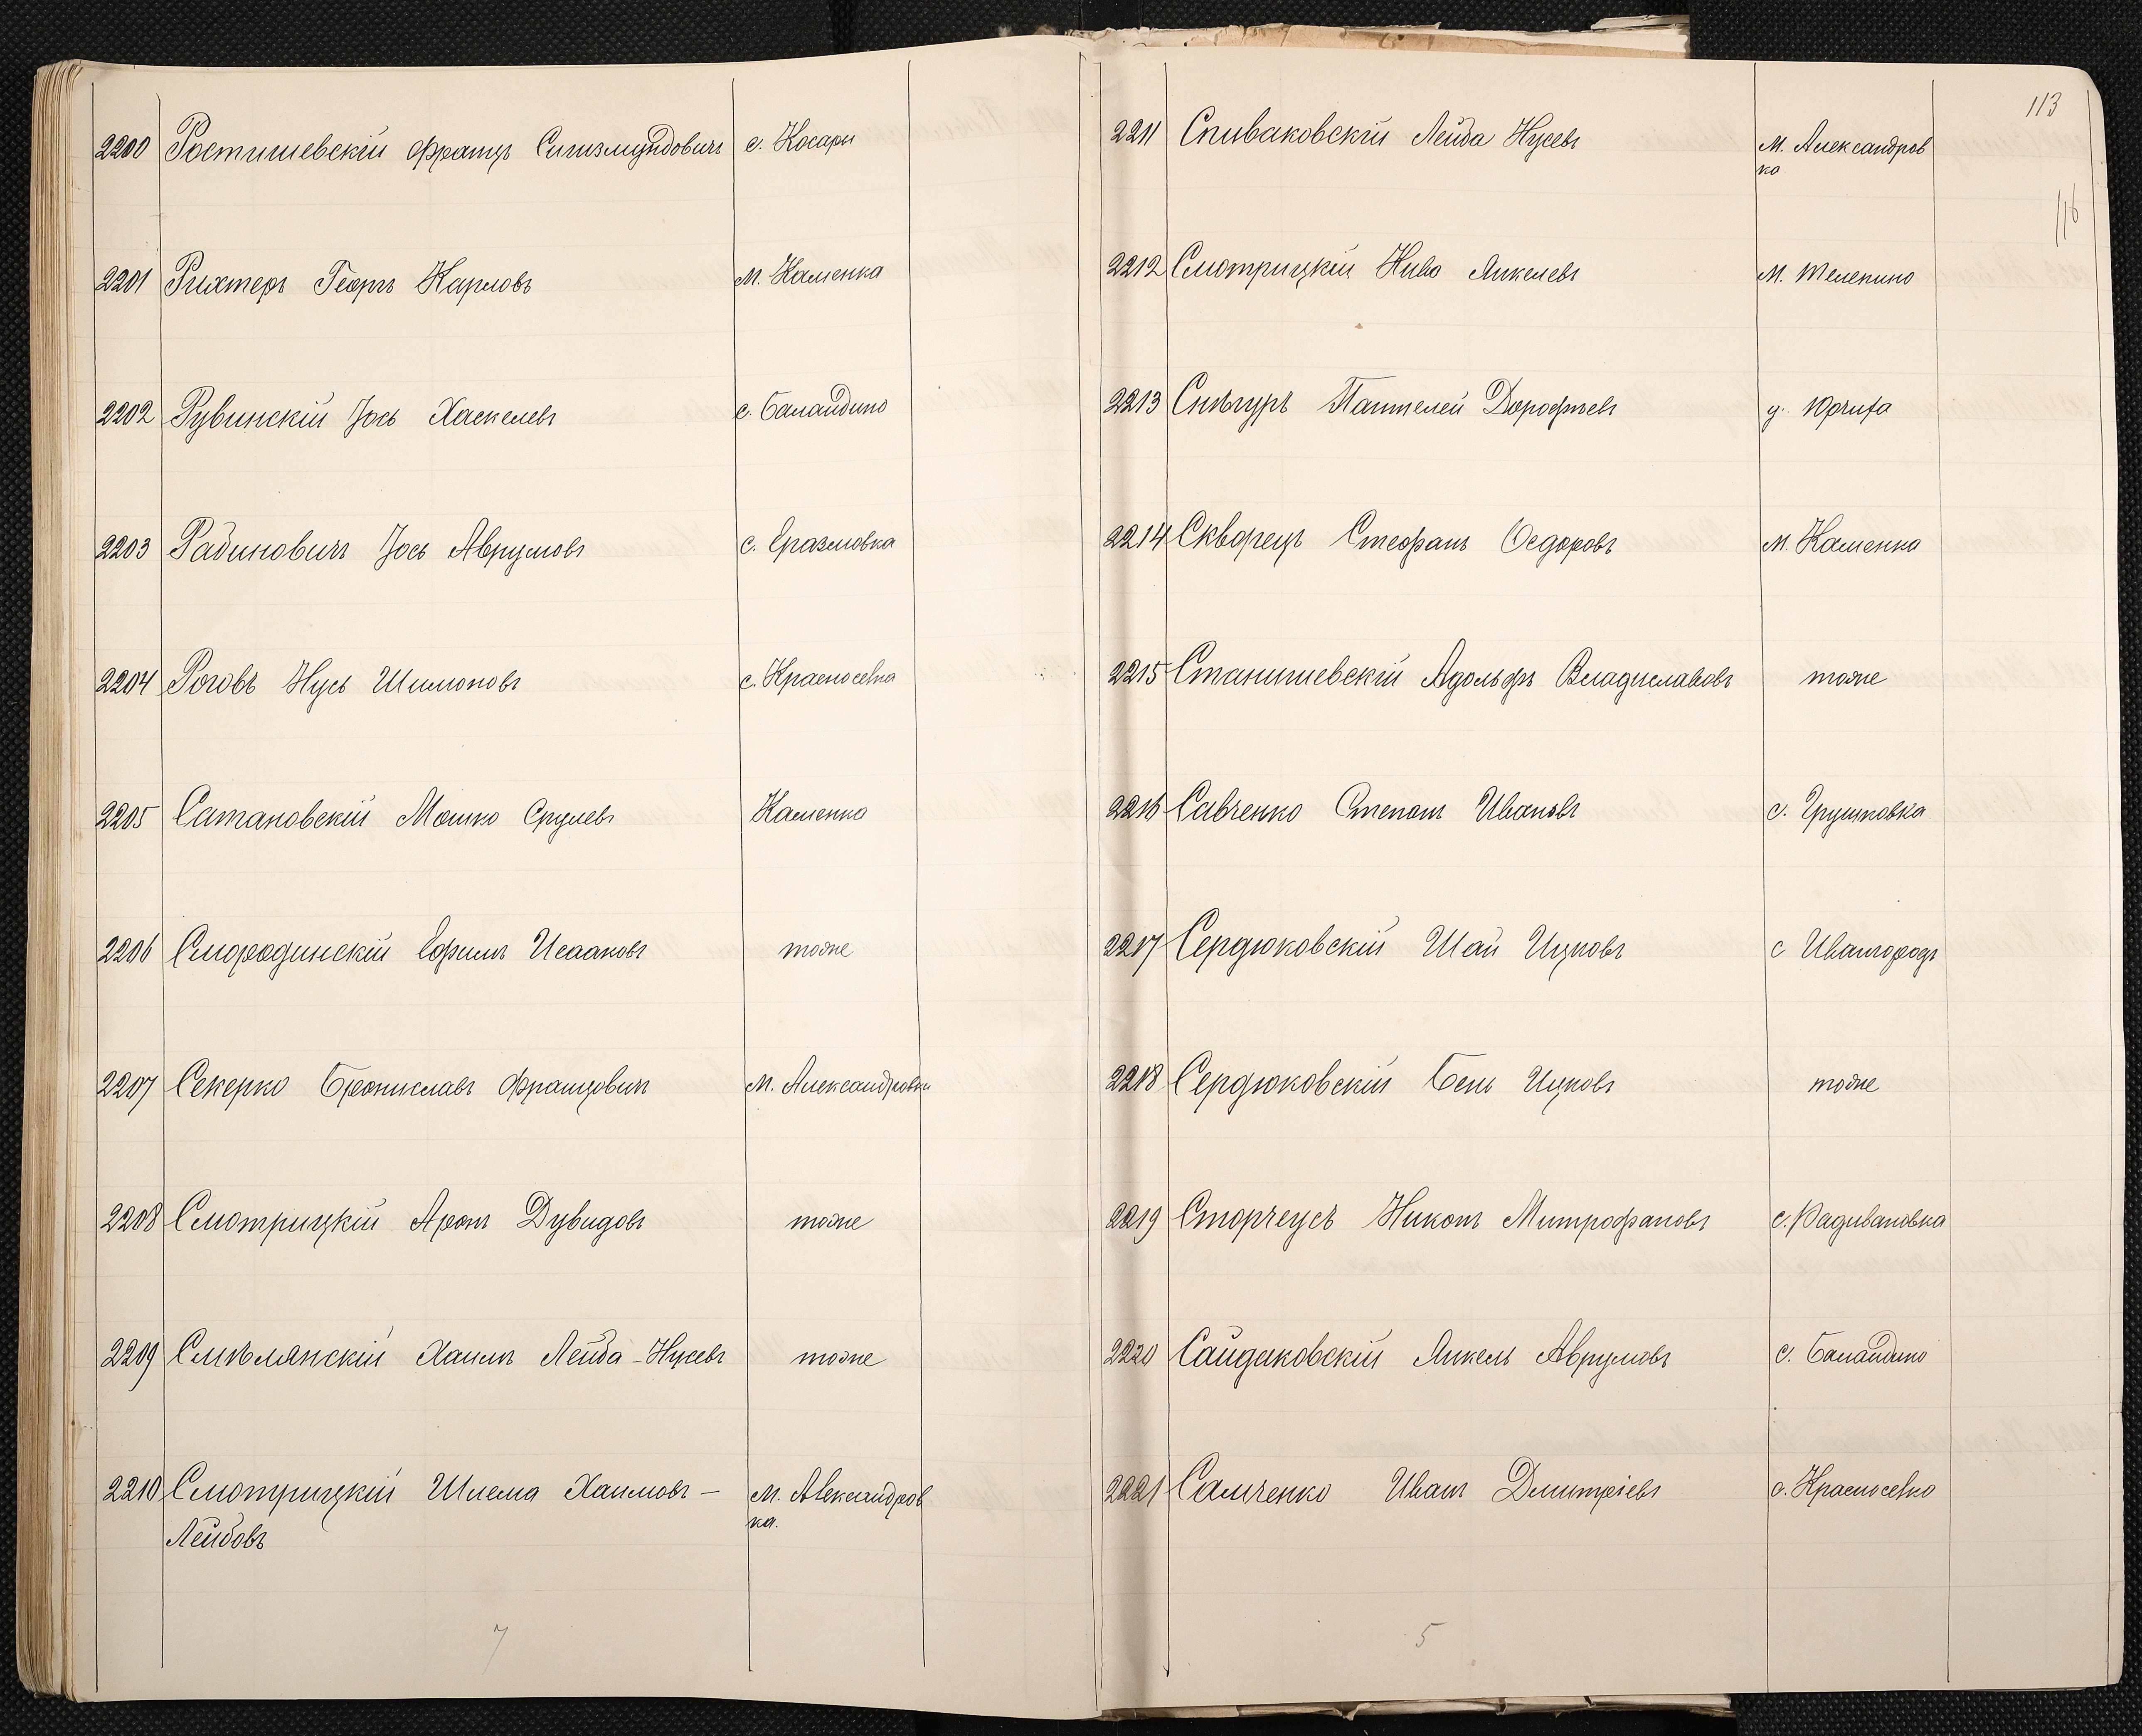 2200 Ростишевскій Францъ Сигизмундовичъ с. Косари
2201 Рихтеръ Георгъ Карловъ м. Каменка
2202 Рувинскій Іось Хаскелевъ с. Баландино
2203 Рабиновичъ Іось Аврумовъ с. Еразмовка
2204 Роговъ Нусь Шимоновъ с. Красноселка
2205 Сатановскій Мошко Срулевъ Каменка
2206 Смородинскій Ефимъ Исааковъ тоже
2207 Секерко Брониславъ Францовичъ м. Александровка
2208 Смотрицкій Аронъ Дувидовъ тоже
2209 Смѣлянскій Хаимъ Лейба-Нусевъ тоже
2210 Смотрицкій Шлема Хаимовъ – м. Александров
Лейбовъ ка.
7
113
116
2211 Спиваковскій Лейба Нусевъ м. Александров
ка
2212 Смотрицкій Янкелевъ м. Телепино
2213 Снѣгуръ Пантелей Дорофѣевъ
2214 Скворецъ Стефанъ Ѳедоровъ м. Каменка
2215 Станишевскій Адольфъ Владиславовъ тоже
2216 Савченко Степанъ Ивановъ с. Грушковка
2217 Сердюковскій Шай Ицковъ с Ивангородъ
2218 Сердюковскій Бень Ицковъ тоже
2219 Сторчеусъ Никонъ Митрофановъ с. Радивановка
2220 Сайдаковскій Янкель Аврумовъ с. Баландино
2221 Самченко Иванъ Дмитріевъ с. Красноселка
5